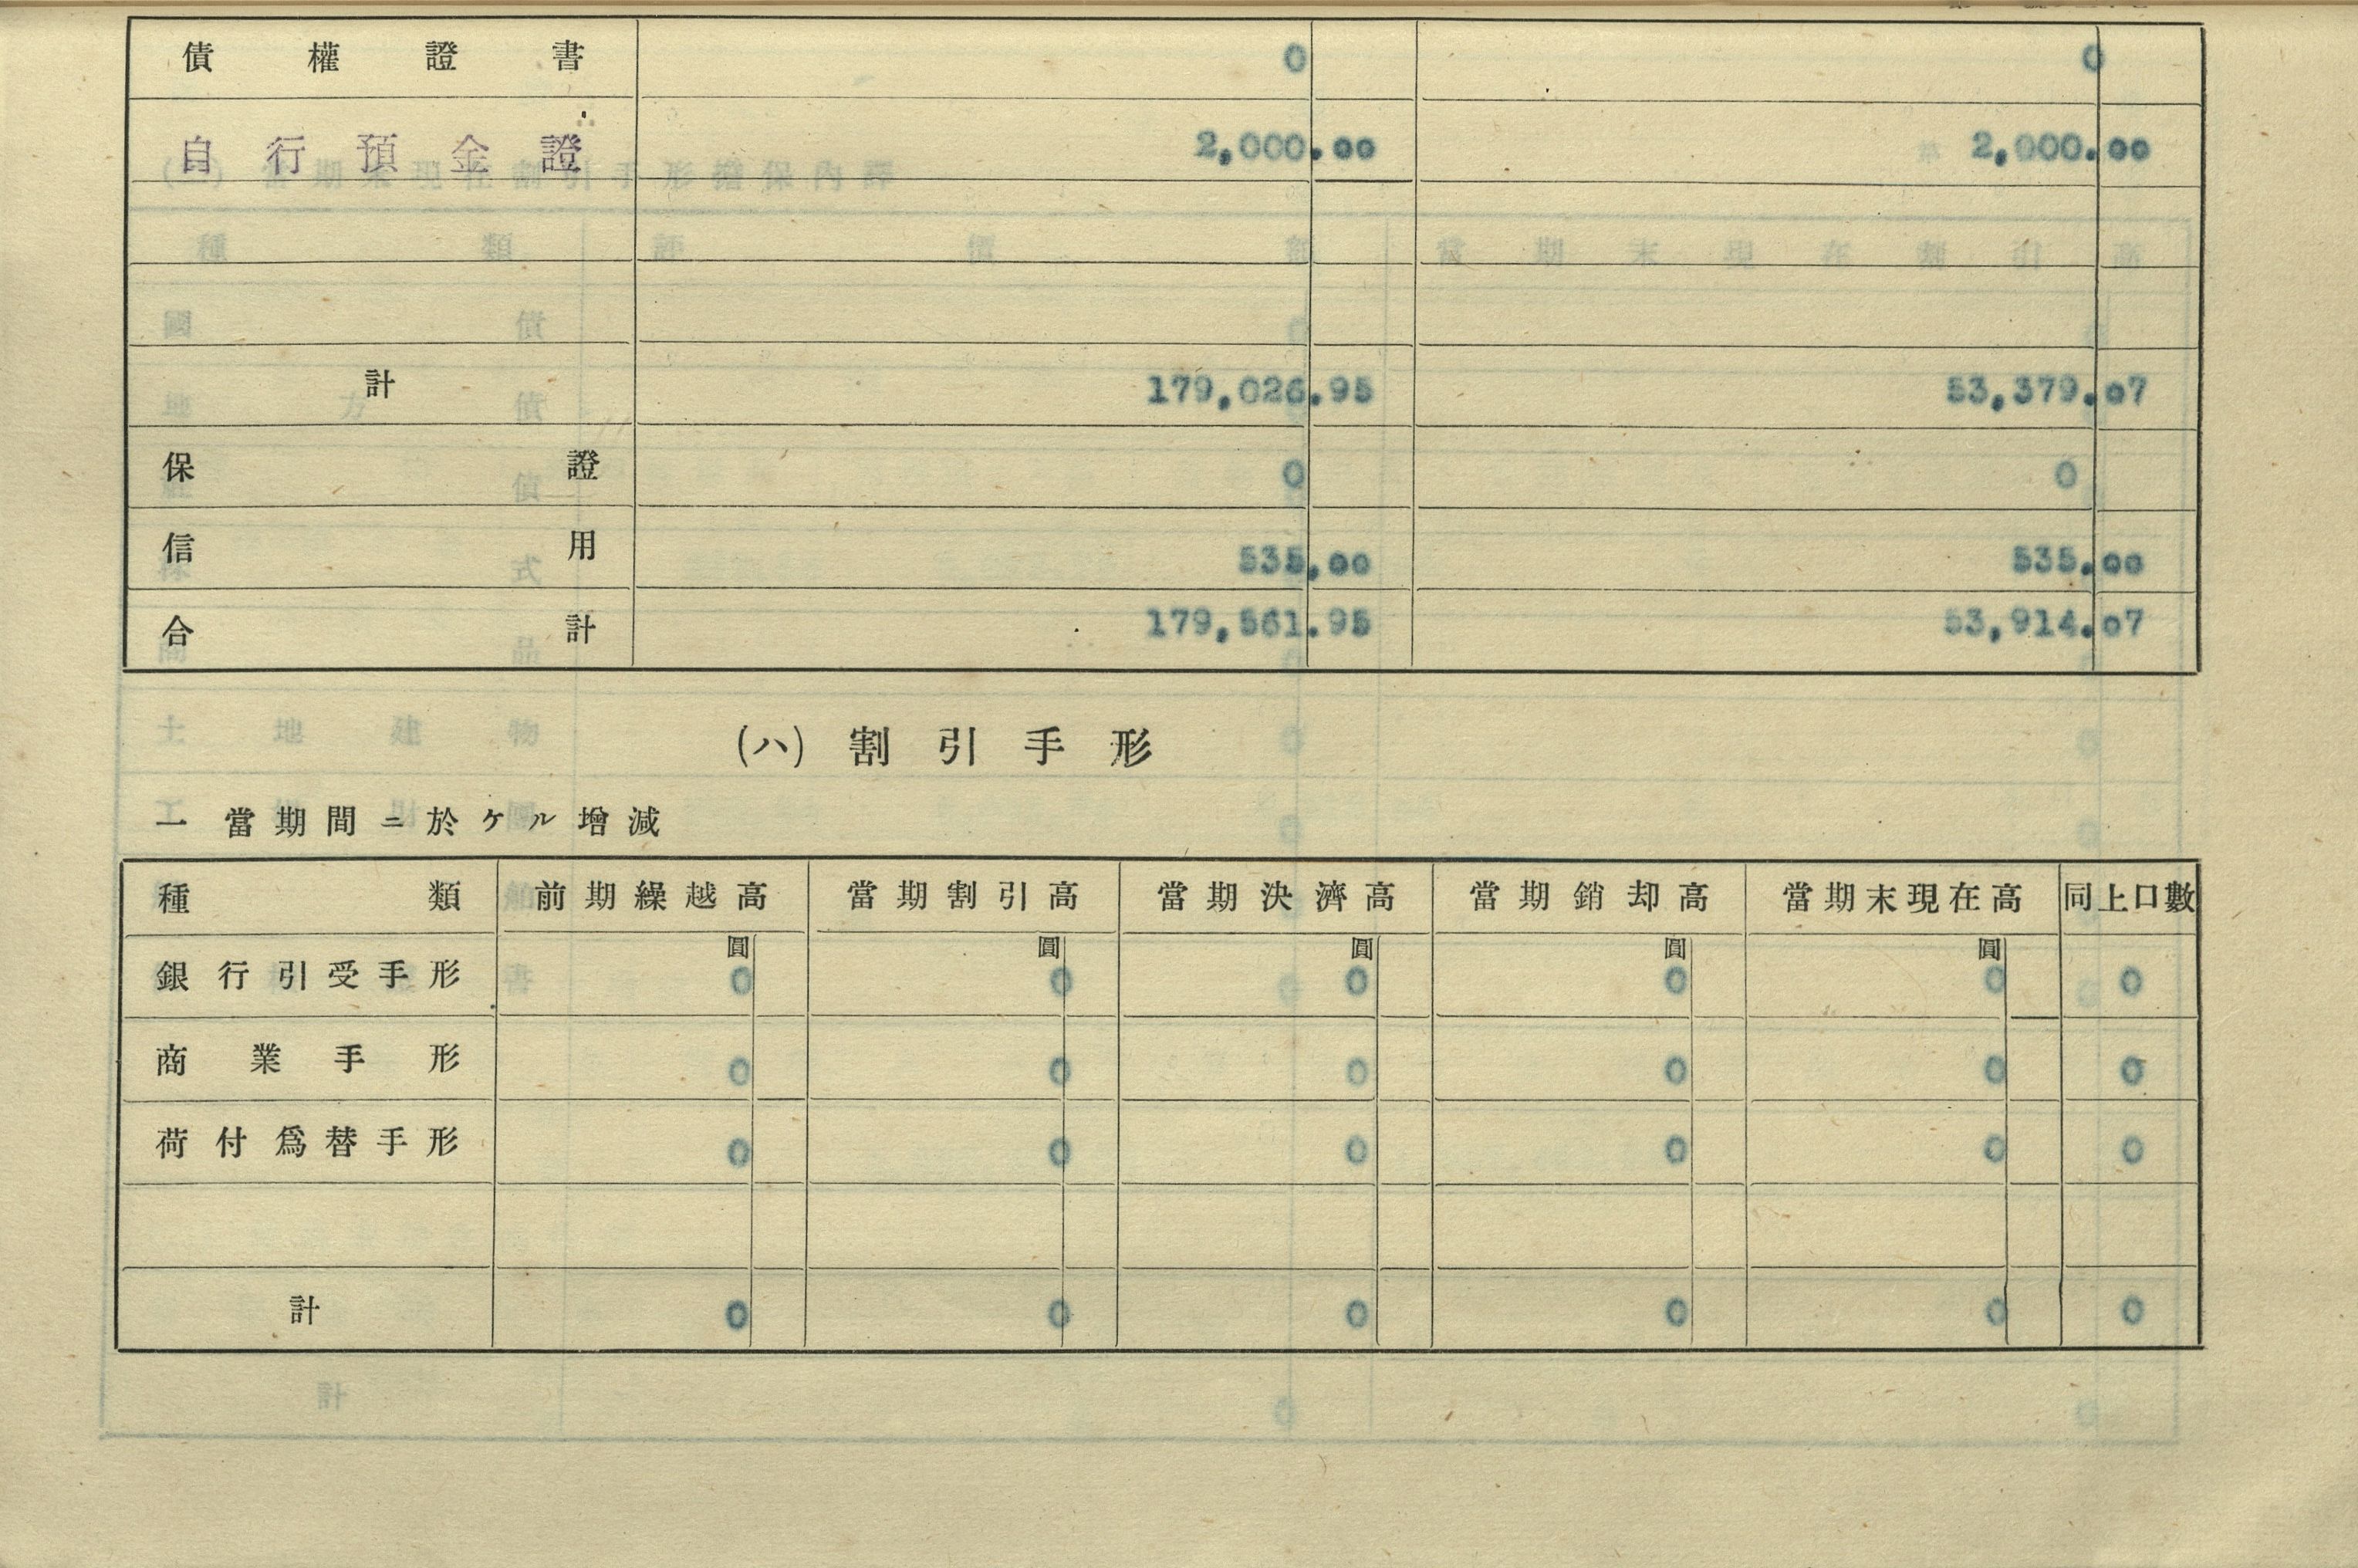 債權證書 0 0
自行預金證 2,000.00 2,000.00
計 179,026.95 53,379.07
保證 0 0
信用 535.00 535.00
合計 179,561.95 53,914.07
(ハ) 割引手形
一 當期間ニ於ケル增減
種類 前期繰越高 當期割引高 當期決濟高 當期銷却高 當期末現在高 同上口數
圓 圓 圓 圓 圓
銀行引受手形 0 0 0 0 0 0
商業手形 0 0 0 0 0 0
荷付爲替手形 0 0 0 0 0 0
計 0 0 0 0 0 0